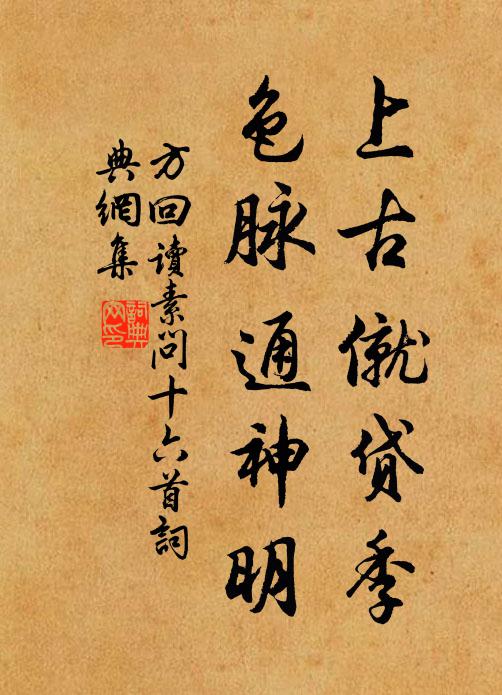 上古僦貸季
色脉通神明
方回讀素問十六首詞
典網集
詞典網印